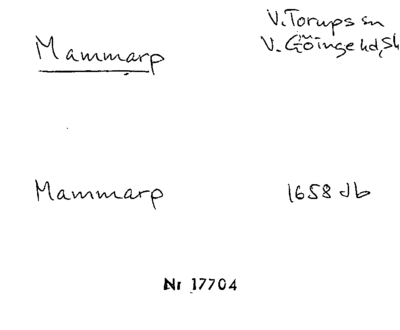 V. Torups sn
Mammarp
V. Göinge hd, Sk
Mammarp
1658 Jb
Nr 17704